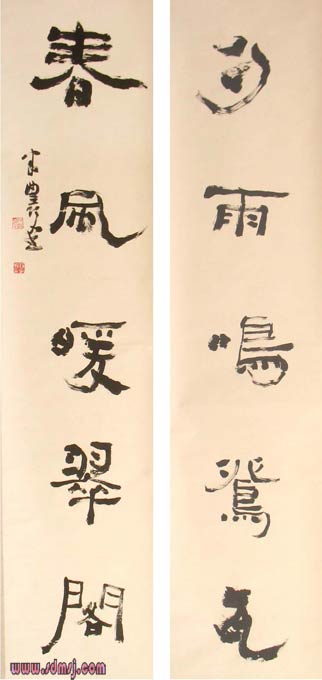 雨鳴鴛瓦
春風暖翠閣
www.sdmsj.com